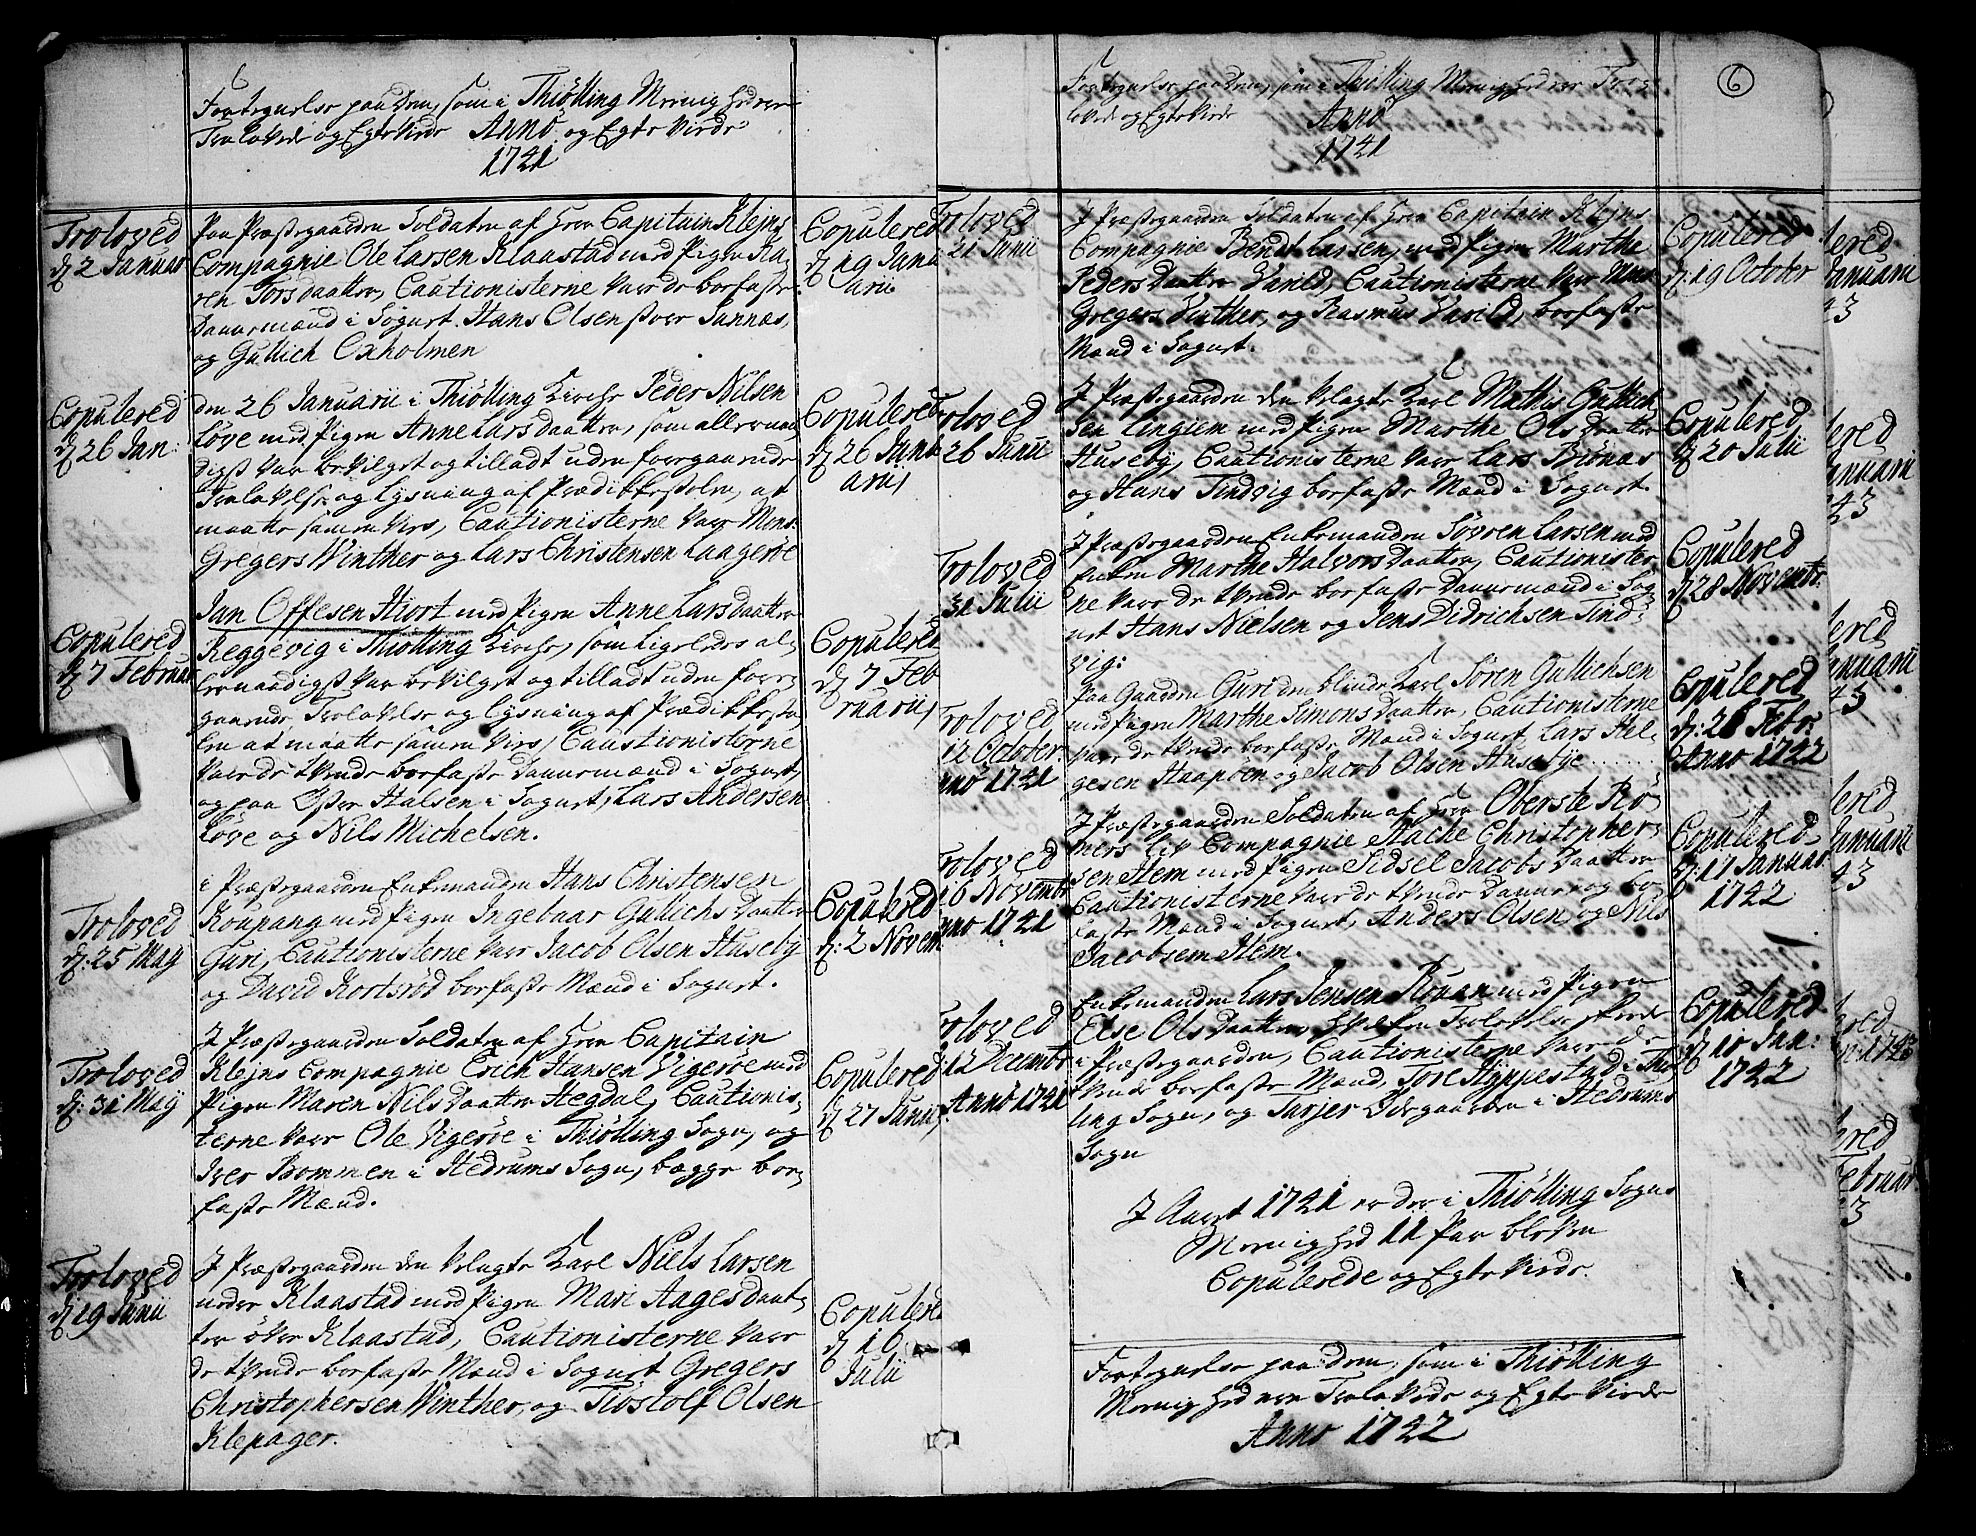 Fortegnelse paa dem, som i Thiölling Menighed ere
Trolovede og EgteViede Anno og EgteViede
1741
Troloved
d. 2 Januar
Paa Præstegaarden Soldaten af Herr Capitain Klejns
Compagnie Ole Larsen Klaastad med Pigen Ka-
ren Torsdaatter, Cautionisterne vare de boefaste
Dannemænd i Sognet. Hans Olsen Auver Jannæs,
og Gullich Oxholmen
Copulered
d. 19 Janu
arii
Copulered
d. 26 Jan:
den 26 Januarii i Thiölling Kirche Peder Nilsen
Löve med Pigen Anne Larsdaatter, som allernaa-
digst var bevilget og tilladt uden foregaaende
Trolovelse og Lysning af Prædikkestolen, at
maatte sammen vies, Cautionisterne vare Mons:
Gregers Winther og Lars Christensen Laageröe
Copulered
d. 26 Janu
arii,
Copulered
d. 7 Februar
Jan Offesen Hiort med Pigen Anne Larsdaatter
Reggevig i Thiölling Kirche, som ligeledes al-
lernaadigst var bevilget og tilladt uden fore-
gaaende Trolovelse og Lysning af Prædikkesto-
len at maatte sammen vies, Caustionisterne
vare de tvende boefaste Dannemænd i Sognet,
og paa Öster Halsen i Sognet, Lars Andersen
Löve og Nils Michelsen.
Copulered
d. 7 Feb
ruarii,
Troloved
d: 25 Maij
i Præstegaarden Enkemanden Hans Christensen
Roupang med Pigen Ingebaar Gullichsdaatter
Guri, Cautionisterne vare Jacob Olsen Huseby
og David Kortsröd boefaste Mænd i Sognet.
Copulered
d: 2 Novem
Troloved
d: 31 Maij
I Præstegaarden Soldaten af Herr Capitain
Klejns Compagnie Erich Hansen Vigeröe med
Pigen Maren Nilsdaatter Hegdal, Cautionis-
terne vare Ole Vigeröe i Thiölling Sogn, og
Iver Bommen i Hedrums Sogn, begge boe-
faste Mænd.
Copulered
d 27 Junii,
Troloved
d. 19 Junii
I Præstegaarden den velagte Karl Niels Larsen
neder Klaastad med Pigen Mari Aagesdaat-
ter över Klaastad, Cautionisterne vare
de tvende boefaste Mænd i Sognet Gregers
Christophersen Winther, og Tiostolf Olsen
Klepager.
Copulered
d 16
Julii
Fortegnelse paa dem, som i Thiölling Menighed ere Tro-
lovede og EgteViede
Anno
1741
6
Troloved
21 Junii
I Præstegaarden Soldaten af Herr Capitain Klejns
Compagnie Bendt Larsen, med Pigen Marthe
Pedersdaatter Varild, Cautionisterne vare Mons
Gregers Vinther, og Rasmus Varild, boefaste
Mænd i Sognet.
Copulered
d. 19 October
Troloved
26 Junii
I Præstegaarden den velagte Karl Mathis Gullich-
sen Linglem med Pigen Marthe Olsdaatter
Huseby, Cautionisterne vare Lars Biönæs
og Hans Tindvig boefaste Mænd i Sognet.
Copulered
d 20 Julii
Troloved
31 Julii
I Præstegaarden Enkemanden Sövren Larsen med
Enken Marthe Halvorsdaatter, Cautionister-
ne vare de tvende boefaste Dannemænd i Sog-
net Hans Nielsen og Jens Didrichsen Tind-
vig:
Copulered
d 28 Novembr
Troloved
12 October
Anno 1741
Paa Gaarden Guri den blinde Karl Sören Gullichsen
med Pigen Marthe Simonsdaatter, Cautionisterne
vare de tvende boefaste Mænd i Sognet Lars Hel-
gesen Haapöen og Jacob Olsen Husebye
Copulered
d: 28 Febr.
Anno 1742
Troloved
16 Novembr
Anno 1741
I Præstegaarden Soldaten af Herr Oberste Rö-
mers Liv Compagnie Stache Christopher-
sen Hem med Pigen Sidsel Jacobsdaatter
Cautionisterne vare de tvende Danne og bo-
faste Mænd i Sognet, Anders Olsen og Nils
Jacobsem Hem.
Copulered
d: 17 Januar
1742
Troloved
12 Decembr
Anno 1741
Enkemanden Lars Jensen Rouan med Pigen
Else Olsdaatter, hvilken Trolovelse skeede
i Præstegaarden, Cautionisterne vare de
tvende boefaste Mænd, Tore Hyppestad i Thiöl-
ling Sogn, og Tarjer Ödegaarden i Hedrums
Sogn
Copulered
d 10 Jan:
1742
I Aaret 1741 er der i Thiölling Sogns
Menighed 11 Par bleven
Copulerede og EgteViede.
Fortegnelse paa dem, som i Thiölling
Menighed ere Trolovede og EgteViede
Anno 1742